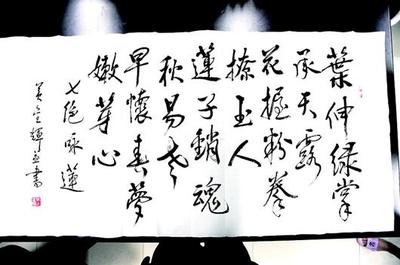 葉伸緑掌
承天露
花握粉拳
撩玉人
蓮子銷魂
秋易老
早懷春夢
嫩芽心
七絕咏蓮